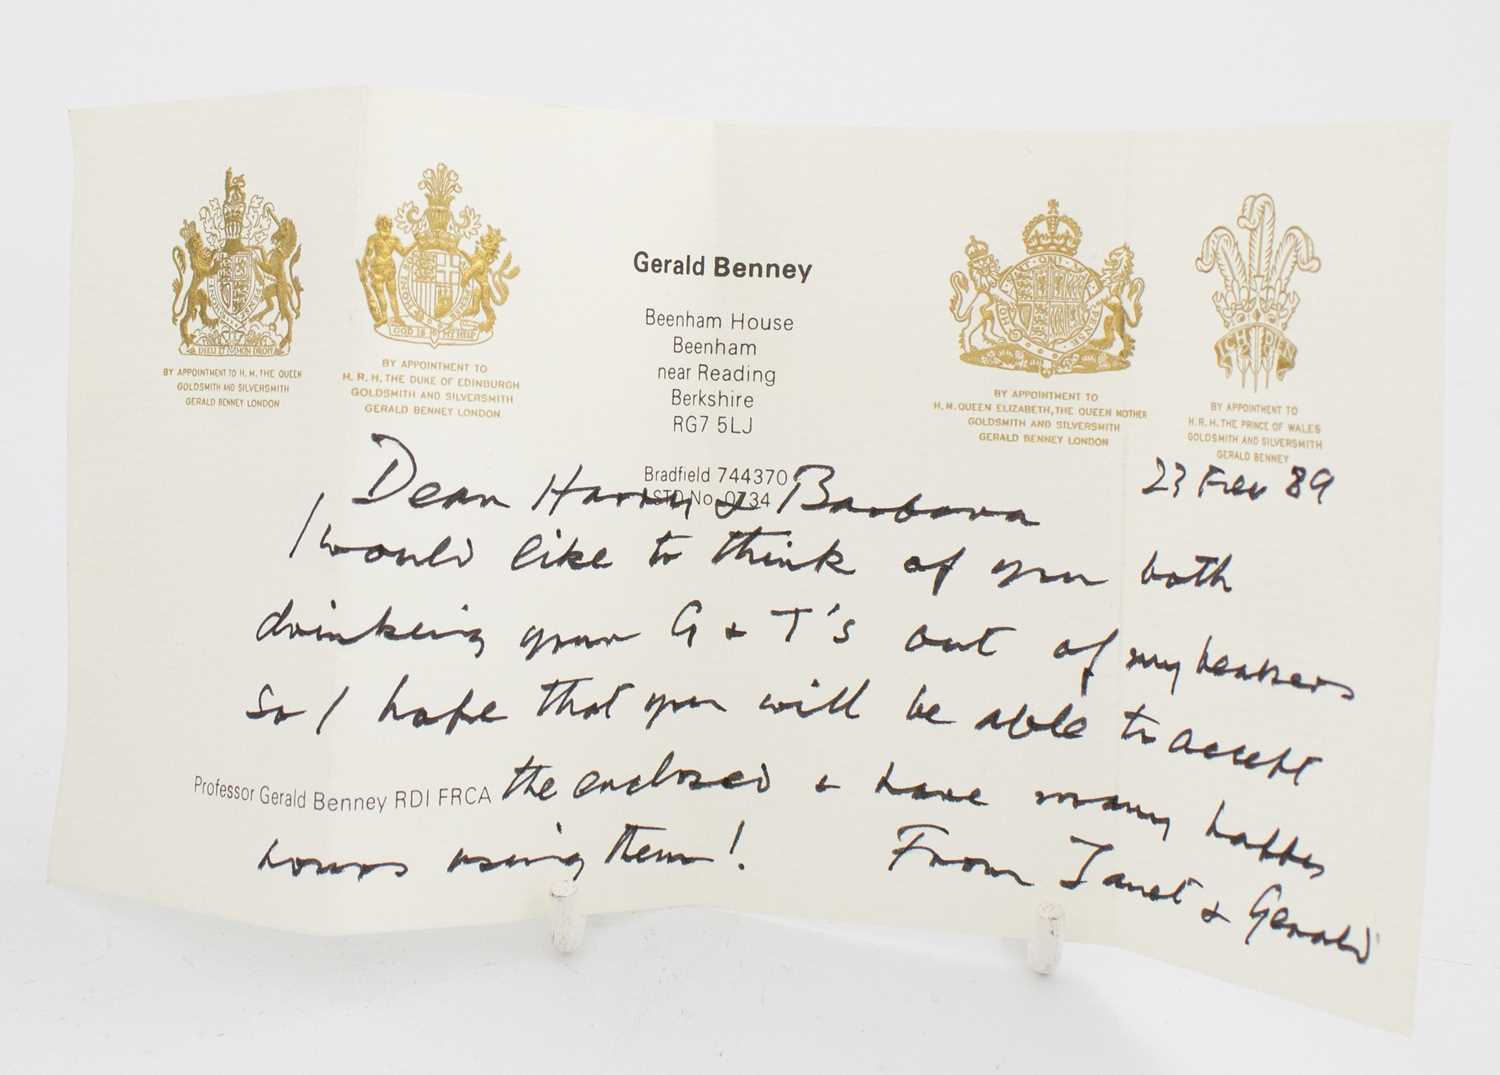 DIEU ET MON DROIT
BY APPOINTMENT TO H. M. THE QUEEN
GOLDSMITH AND SILVERSMITH
GERALD BENNEY LONDON
GOD IS MY HELP
BY APPOINTMENT TO
H. R. H. THE DUKE OF EDINBURGH
GOLDSMITH AND SILVERSMITH
GERALD BENNEY LONDON
Gerald Benney
Beenham House
Beenham
near Reading
Berkshire
RG7 5LJ
Bradfield 744370
STD No. 0734
BY APPOINTMENT TO
H. M. QUEEN ELIZABETH, THE QUEEN MOTHER
GOLDSMITH AND SILVERSMITH
GERALD BENNEY LONDON
ICH DIEN
BY APPOINTMENT TO
H. R. H. THE PRINCE OF WALES
GOLDSMITH AND SILVERSMITH
GERALD BENNEY
23 Feb 89
Dear Harry & Barbara
I would like to think of you both
drinking your G & T's out of my beakers
so I hope that you will be able to accept
the enclosed & have many happy
hours using them!
From Janet & Gerald
Professor Gerald Benney RDI FRCA